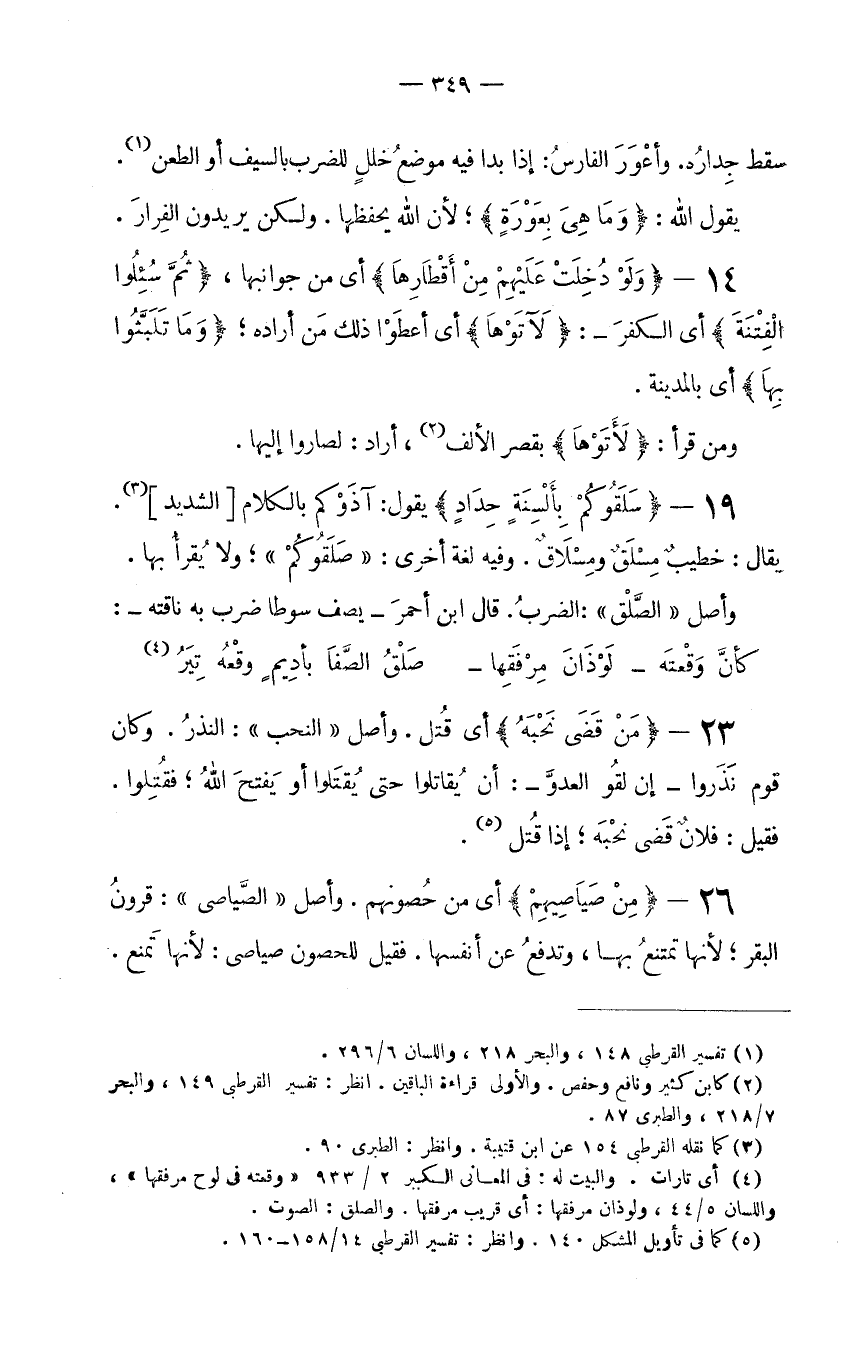 — ٣٤٩ —
سقط جِدارُه. وأعْوَرَ الفارسُ: إذا بدا فيه موضعُ خللٍ للضرب بالسيف أو الطعن(١).
يقول الله : ﴿ وَمَا هِىَ بِعَوْرَةٍ ﴾ ؛ لأن الله يحفظها . ولـكن يريدون الفِرارَ .
١٤ — ﴿ وَلَوْ دُخِلَتْ عَلَيْهِمْ مِنْ أَقْطَارِهَا ﴾ أى من جوانبها ، ﴿ ثُمَّ سُئِلُوا
الْفِتْنَةَ ﴾ أى الـكفرَ ـ : ﴿ لَآتَوْهَا ﴾ أى أعطَوْا ذلك مَن أراده ؛ ﴿ وَمَا تَلَبَّثُوا
بِهَا ﴾ أى بالمدينة .
ومن قرأ : ﴿ لَأَتَوْهَا ﴾ بقصر الألف(٢) ، أراد : لصاروا إليها .
١٩ — ﴿ سَلَقُوكُمْ بِأَلْسِنَةٍ حِدَادٍ ﴾ يقول: آذَوْكم بالكلام [ الشديد ](٣).
يقال : خطيبٌ مِسْلَقٌ ومِسْلَاقٌ . وفيه لغة أخرى : « صَلَقُوكُمْ » ؛ ولا يُقرأُ بها .
وأصل « الصَّلْق» :الضربُ. قال ابن أحمرَ ـ يصف سوطا ضرب به ناقته ـ :
كأنَّ وَقْعتَه ـ لَوْذَانَ مِرْفَقِها ـ صَلْقُ الصَّفَا بأَديمٍ وقْعُهُ تِيَرُ (٤)
٢٣ — ﴿ مَنْ قَضَى نَحْبَهُ ﴾ أى قُتل . وأصل « النحب » : النذرُ . وكان
قوم نَذَروا ـ إن لقُو العدوَّ ـ : أن يُقاتلوا حتى يُقتَلوا أو يَفتحَ اللهُ ؛ فقُتِلوا .
فقيل : فلانٌ قَضى نحْبَه ؛ إذا قُتل (٥) .
٢٦ — ﴿ مِنْ صَيَاصِيهِمْ ﴾ أى من حُصونهم . وأصل « الصَّياصى » : قرونُ
البقر ؛ لأنها تمتنعُ بهـا ، وتدفعُ عن أنفسها . فقيل للحصون صياصى : لأنها تَمنع .
(١) تفسير القرطى ١٤٨ ، والبحر ٢١٨ ، واللسان ٢٩٦/٦ .
(٢) كابن كثير ونافع وحفص . والأولى قراءة الباقين . انظر : تفسير القرطى ١٤٩ ، والبحر
٢١٨/٧ ، والطبرى ٨٧ .
(٣) كما نقله القرطى ١٥٤ عن ابن قتيبة . وانظر : الطبرى ٩٠ .
(٤) أى تارات . والبيت له : فى المعـانى الـكبير ٢ / ٩٣٣ « وقعته فى لوح مرفقها » ،
واللسان ٤٤/٥ ، ولوذان مرفقها : أى قريب مرفقها . والصلق : الصوت .
(٥) كما فى تأويل المشكل ١٤٠ . وانظر : تفسير القرطى ١٥٨/١٤ـ١٦٠ .